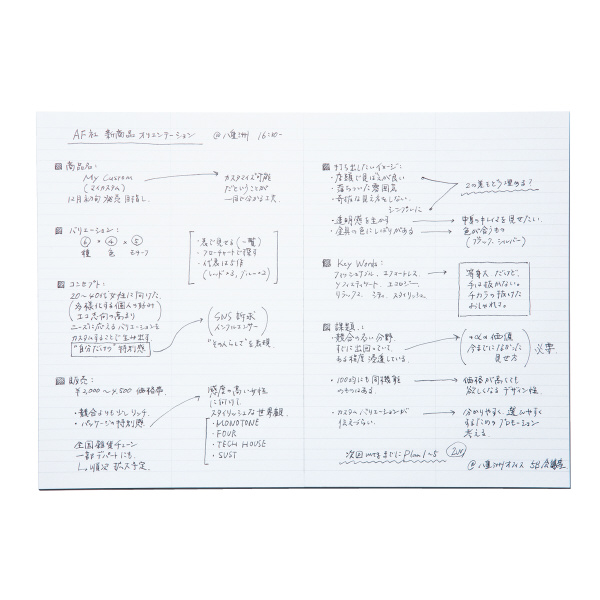 AF社 新商品 オリエンテーション @八重洲 16:30-
商品名:
My Custom
(マイカスタム)
12月初旬 発売 目指し
カスタマイズ可能
だということが
一目で分かる工夫
バリエーション:
⑥ × ④ × ⑤
種 色 モチーフ
・表で見せる(一覧)
・フローチャートで探す
・代表は5作
(レッド×3, ブルー×2)
コンセプト:
20〜40代女性に向けた、
多様化する個人の好みや
エコ志向の高まり
ニーズに応えるバリエーションを
カスタムすることで生み出す
"自分だけの"特別感
SNS 訴求
インフルエンサー
"その人らしさ"を表現
販売:
¥2,000〜4,500 価格帯
・競合よりも少しリッチ
・パッケージの特別感
全国雑貨チェーン
一部デパートにも
し、順次 拡大予定
感度の高い女性
に向けて
スタイリッシュな世界観
・MONOTONE
・FOUR
・TECH HOUSE
・SUST
打ち出したいイメージ:
・店頭で見ばえが良い
・落ちついた雰囲気
・奇抜な見え方をしない
シンプルに
2つの差をどう埋める?
・透明感を生かす
・金具の色にこだわりがある
中身のキレイさを見せたい
色が合うもの
(ブラック、シルバー)
Key Words:
ファッショナブル、エフォートレス、
ソフィスティケート、エコロジー、
リラックス、ミニマム、スタイリッシュ
等身大だけど、
手は抜かない。
チカラの抜けた
おしゃれさ。
課題:
・競合の多い分野
すでに出回っていて
ある程度浸透している
+αの価値
今までになかった
見せ方
必要
・100均にも同機能
のものはある
価格が高くても
欲しくなるデザイン性
・カスタムバリエーションが
伝えづらい
分かりやすく、選びやすく
するためのプロモーション
考える。
次回MTGまでに Plan 1〜5
@八重洲オフィス 5F会議室